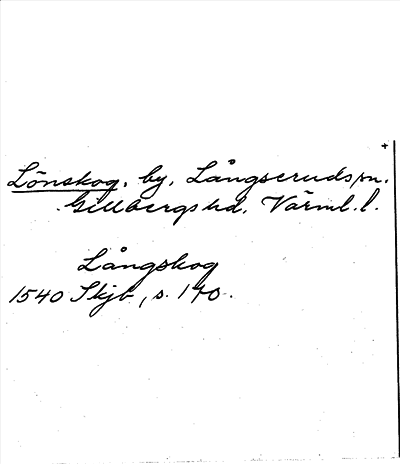 Lönskog, by, Långseruds sn.
Gillbergs hd. Värml. l.
Långskog
1540 Skjb, s. 140.